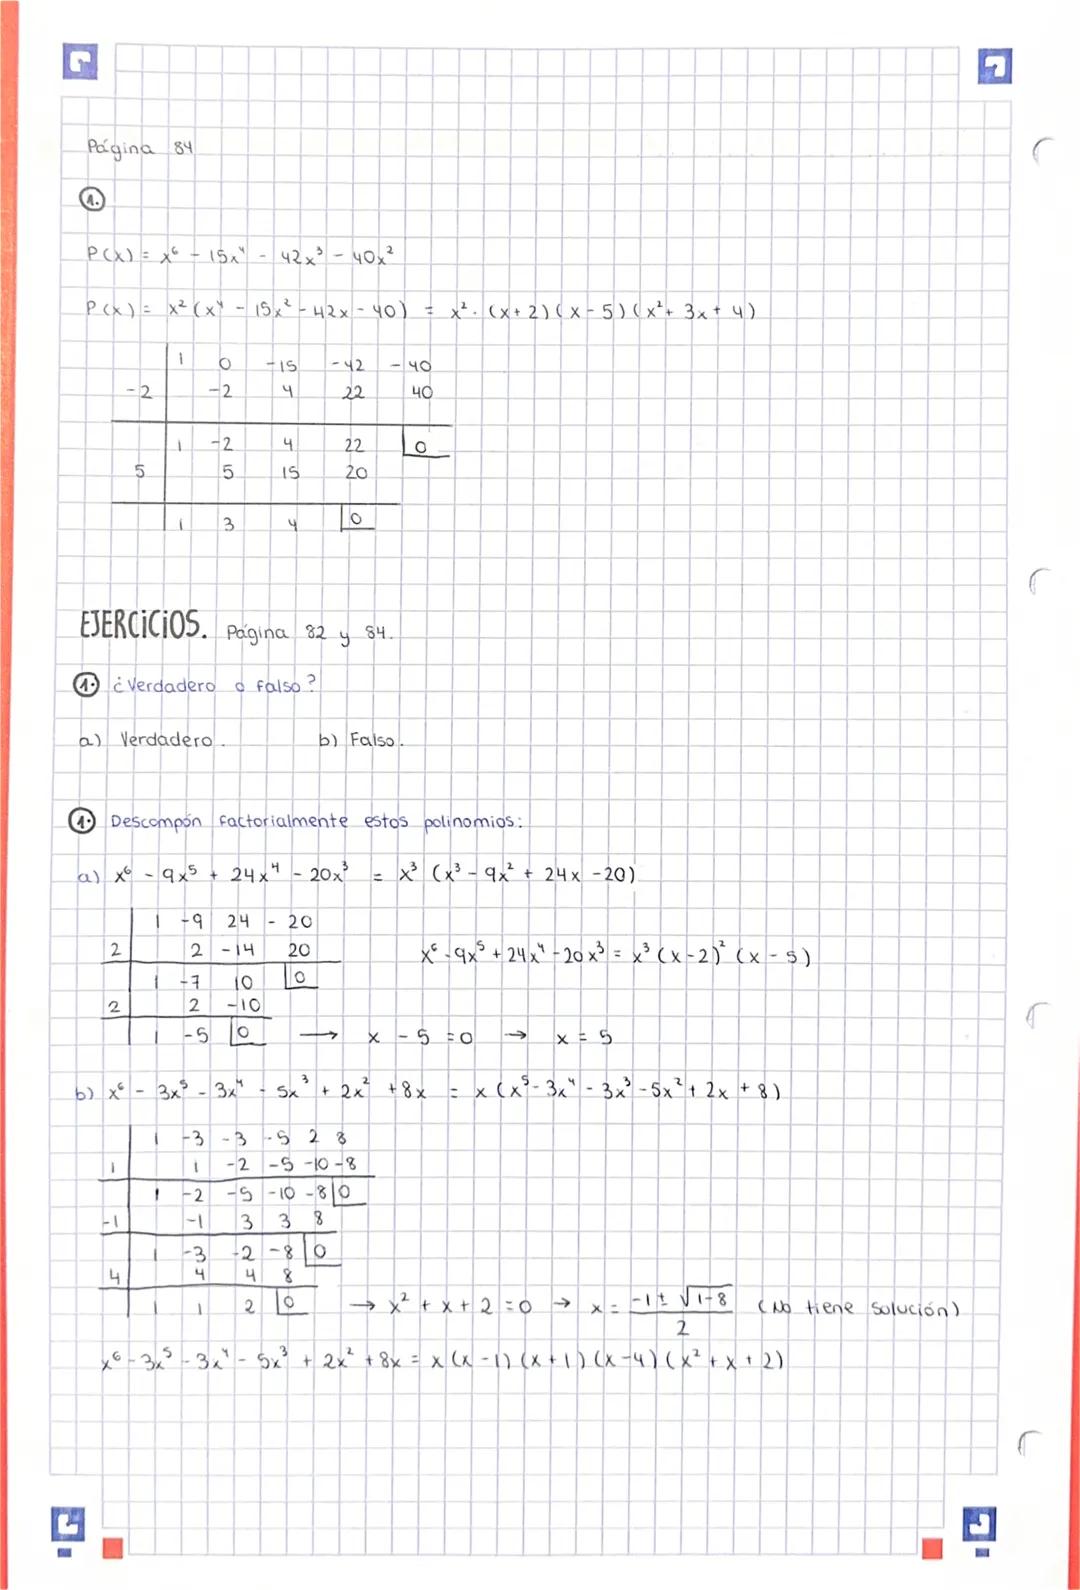 Página 84
1.
P(x) = x⁶ - 15x⁴ - 42x³ - 40x²
P(x) = x² (x⁴ - 15x² - 42x - 40) = x² · (x+2)(x-5)(x² + 3x + 4)
1 0 -15 -42 -40
-2 -2 4 22 40
1 -2 4 22 0
5 5 15 20
1 3 4 0
EJERCICIOS. Página 82 y 84.
1. ¿Verdadero o falso?
a) Verdadero. b) Falso.
1. Descompón factorialmente estos polinomios:
a) x⁶ - 9x⁵ + 24x⁴ - 20x³ = x³ (x³ - 9x² + 24x - 20)
1 -9 24 -20
2 2 -14 20
x⁶ - 9x⁵ + 24x⁴ - 20x³ = x³ (x-2)² (x-5)
1 -7 10 0
2 2 -10
1 -5 0 → x - 5 = 0 → x = 5
b) x⁶ - 3x⁵ - 3x⁴ - 5x³ + 2x² + 8x = x (x⁵ - 3x⁴ - 3x³ - 5x² + 2x + 8)
1 -3 -3 -5 2 8
1 1 -2 -5 -10 -8
1 -2 -5 -10 -8 0
-1 -1 3 3 8
1 -3 -2 -8 0
4 4 4 8
1 1 2 0 → x² + x + 2 = 0 → x = (-1 ± √1-8)/2 (No tiene solución)
x⁶ - 3x⁵ - 3x⁴ - 5x³ + 2x² + 8x = x (x-1) (x+1) (x-4) (x² + x + 2)